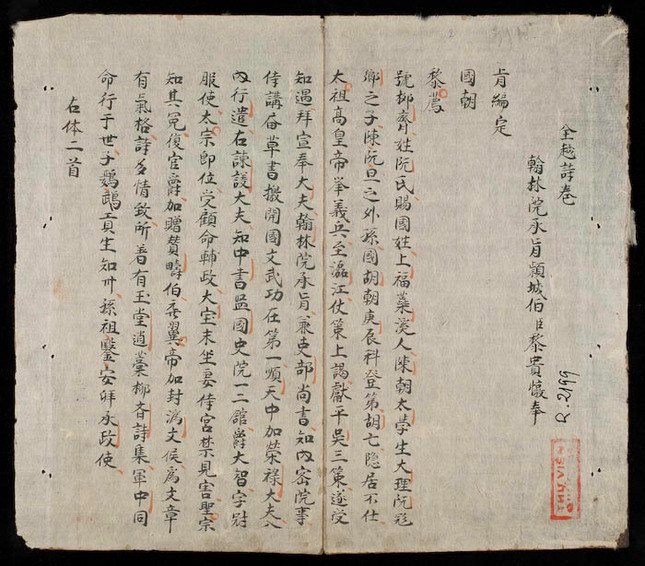 全越詩卷
翰林院承旨頴城伯臣黎貴奉
旨編定
國朝
黎廌
號抑齋姓阮氏賜國姓上福蘂溪人陳朝太學生大理阮飛
卿之子陳阮旦之外孫國胡朝庚辰科登第胡亡隐居不仕
太祖高皇帝举義兵至江仗策上謁獻平吳三策遂受
知遇拜宣奉大夫翰林院承旨兼吏部尚書知內密院事
侍講草書開國文武功在第一順天中加榮禄大夫入
內行遣右諫議大夫知中書监國史院一二舘爵大智字尉
服使太宗即位受顧命輔政大宝末坐妾侍宮禁見害聖宗
知其冤復官爵加贈賛疇伯翼帝加封濟文侯為文章
有氣格詩多情致所着有玉堂遺藁抑斎詩集軍中同
命行于世子鸚鵡員生知州孫祖鑒安邦承政使
右体二首
2199